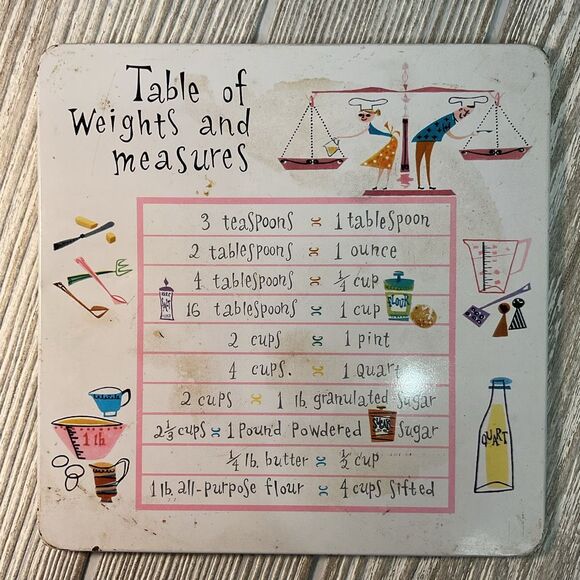 Table of
Weights and
measures
3 teaspoons = 1 tablespoon
2 tablespoons = 1 ounce
4 tablespoons = ¼ cup
16 tablespoons = 1 cup
FLOUR
2 cups = 1 pint
4 cups. = 1 Quart
2 cups = 1 lb. granulated Sugar
2⅓ cups = 1 Pound Powdered Sugar
¼ lb. butter = ½ cup
1 lb. all-purpose flour = 4 cups Sifted
1 lb.
QUART